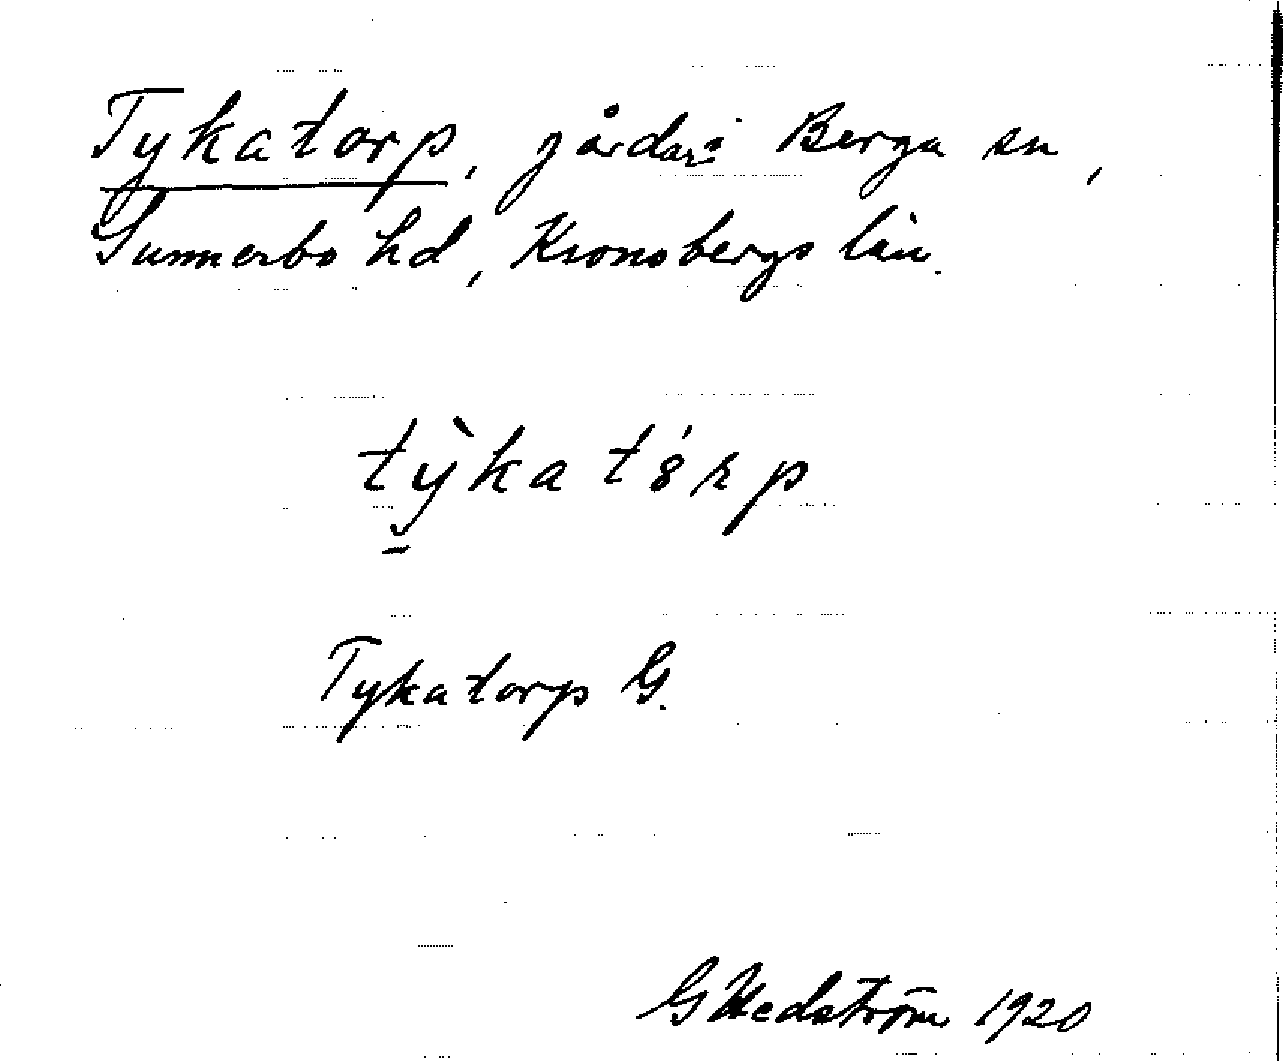 Tykatorp, gårdar i Berga sn,
Sunnerbo hd, Kronobergs län.
Tykatorp G.
G Hedström 1920